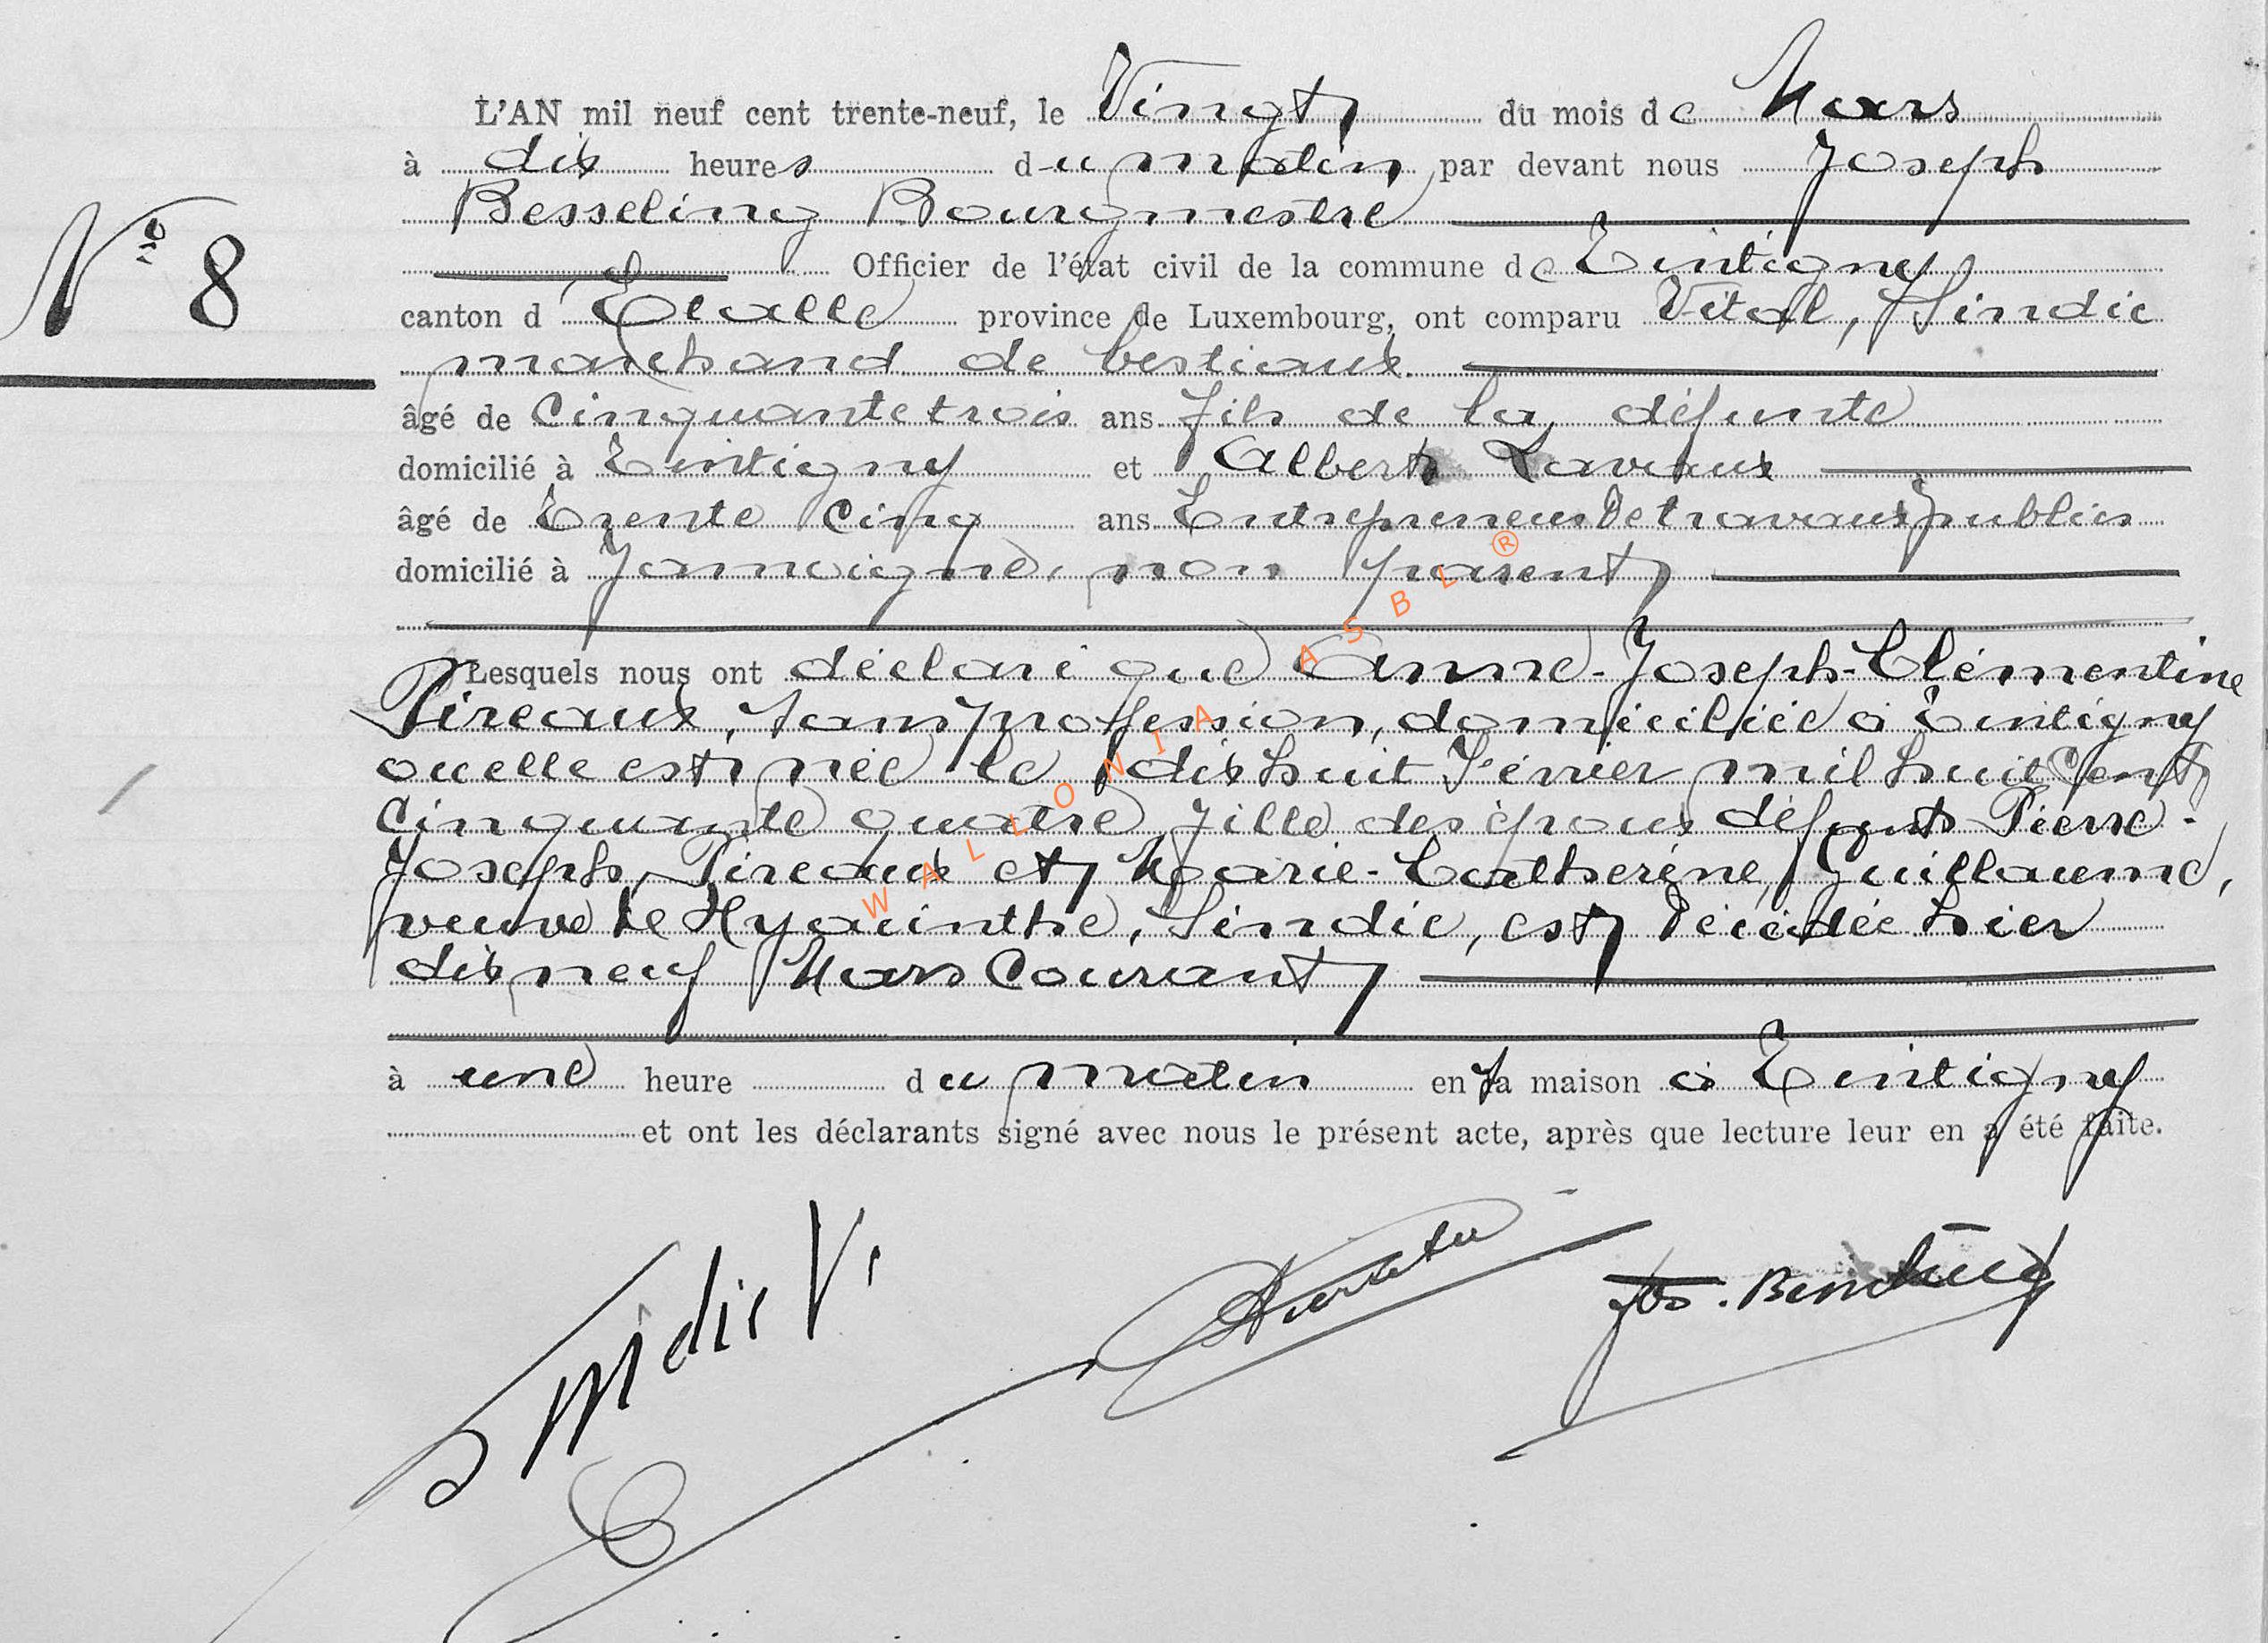 L'AN mil neuf cent trente-neuf, le Vingt du mois de Mars
à dix heures du matin par devant nous Joseph
Besseling Bourgmestre
N° 8
Officier de l'état civil de la commune de Tintigny
canton d'Etalle province de Luxembourg, ont comparu Vital, Sindic
marchand de bestiaux.
âgé de Cinquante trois ans fils de la défunte
domicilié à Tintigny et Albert Lavaux
âgé de Trente Cinq ans Entrepreneur de travaux publics
domicilié à Jamoigne, non parent
Lesquels nous ont déclaré que Anne-Joseph-Clémentine
Pireaux, sans profession, domiciliée à Tintigny
ou elle est née le dix huit Février mil huit Cent
Cinquante quatre, fille des époux défunts Pierre-
Joseph, Pireaux et Marie-Catherine, Guillaume,
veuve de Hyacinthe, Sindic, est décédée hier
dix neuf Mars Courant
à une heure du matin en sa maison à Tintigny
et ont les déclarants signé avec nous le présent acte, après que lecture leur en a été faite.
Sindic V.
Jos.
WALLONIA ASBL ®